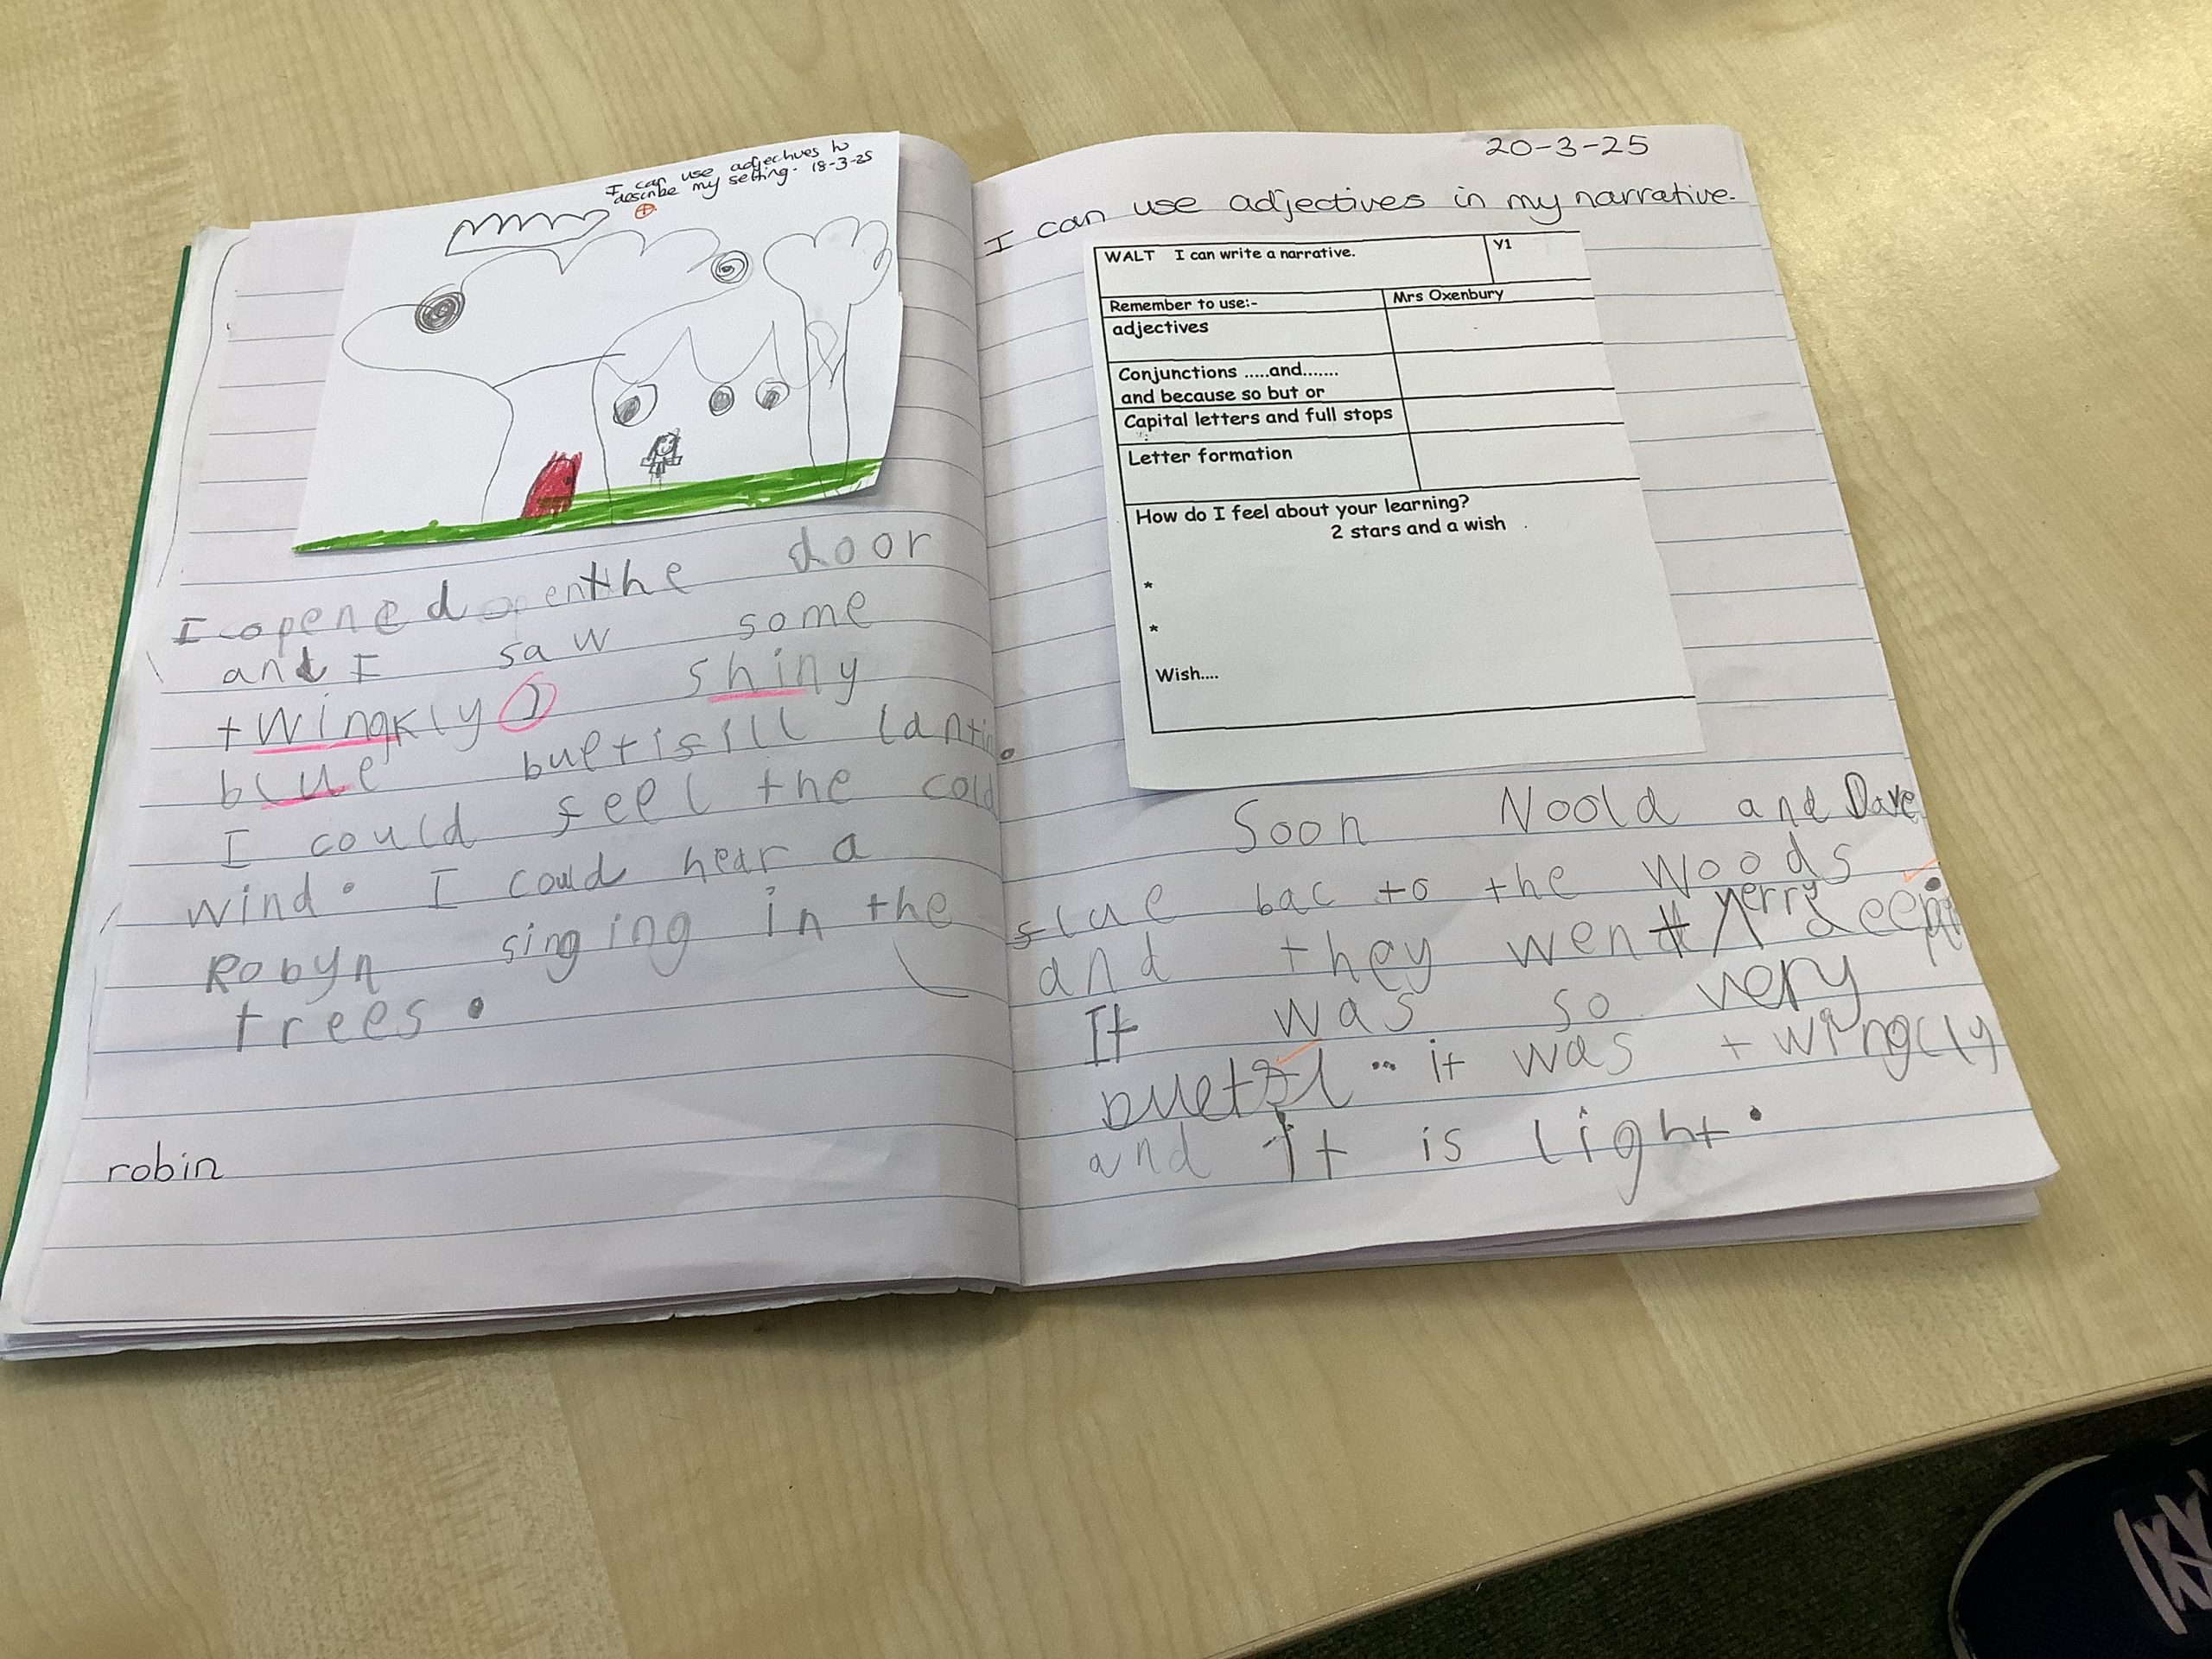 I can use adjectives to
describe my setting. 18-3-25
I opened the door
and I saw some
twingkly, shiny
blue buetisill lantin.
I could feel the cold
wind. I could hear a
Robyn singing in the
trees.
robin
20-3-25
I can use adjectives in my narrative.
WALT I can write a narrative. Y1
Remember to use:- Mrs Oxenbury
adjectives
Conjunctions .....and.......
and because so but or
Capital letters and full stops
Letter formation
How do I feel about your learning?
2 stars and a wish
*
*
Wish....
Soon Noold and Dave
flue bac to the woods
and they went verry deep
It was so very
it was twingcly
and it is light.